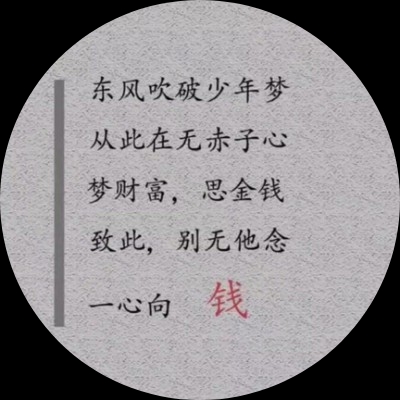 东风吹破少年梦
从此在无赤子心
梦财富，思金钱
致此，别无他念
一心向 钱